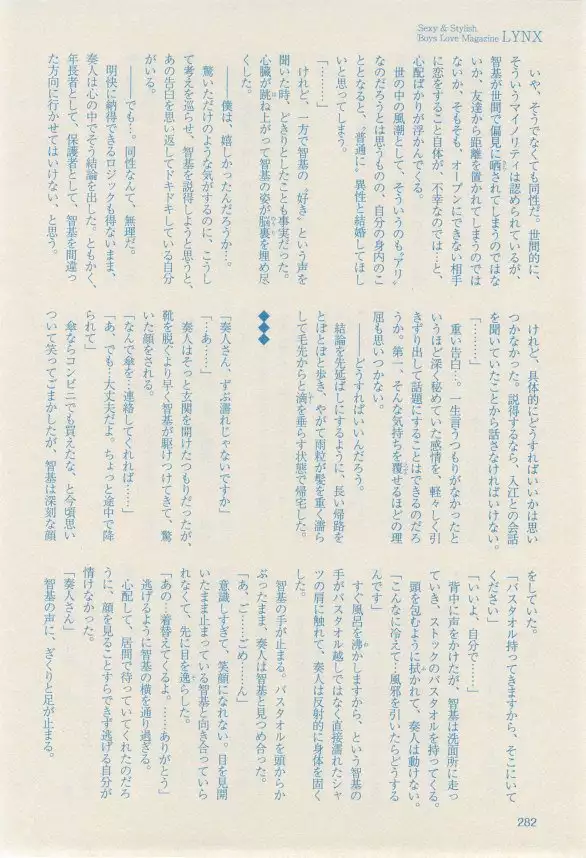 Sexy & Stylish
Boys Love Magazine LYNX
いや、そうでなくても同性だ。世間的に、
そういうマイノリティは認められているが、
智基が世間で偏見に晒されてしまうのではな
いか、友達から距離を置かれてしまうのでは
ないか、そもそも、オープンにできない相手
に恋をすること自体が、不幸なのでは…と、
心配ばかりが浮かんでくる。
世の中の風潮として、そういうのも〝アリ〟
なのだろうとは思うものの、自分の身内のこ
ととなると、〝普通に〟異性と結婚してほし
いと思ってしまう。
「………」
けれど、一方で智基の〝好き〟という声を
聞いた時、どきりとしたことも事実だった。
心臓が跳ね上がって智基の姿が脳裏を埋め尽
くした。
――僕は、嬉しかったんだろうか…。
驚いただけのような気がするのに、こうし
て考えを巡らせ、智基を説得しようと思うと、
あの告白を思い返してドキドキしている自分
がいる。
――でも…。同性なんて、無理だ。
明快に納得できるロジックも得ないまま、
奏人は心の中でそう結論を出した。ともかく、
年長者として、保護者として、智基を間違っ
た方向に行かせてはいけない、と思う。
けれど、具体的にどうすればいいかは思い
つかなかった。説得するなら、入江との会話
を聞いていたことから話さなければいけない。
「………」
重い告白…。一生言うつもりがなかったと
いうほど深く秘めていた感情を、軽々しく引
きずり出して話題にすることはできるのだろ
うか。第一、そんな気持ちを覆せるほどの理
屈も思いつかない。
――どうすればいいんだろう。
結論を先延ばしにするように、長い帰路を
とぼとぼと歩き、やがて雨粒が髪を重く濡ら
して毛先から滴を垂らす状態で帰宅した。
◆◆◆
「奏人さん、ずぶ濡れじゃないですか」
「…あ……」
奏人はそっと玄関を開けたつもりだったが、
靴を脱ぐより早く智基が駆けつけてきて、驚
いた顔をされる。
「なんで傘を…連絡してくれれば……」
「あ、でも…大丈夫だよ。ちょっと途中で降
られて」
傘ならコンビニでも買えたな、と今頃思い
ついて笑ってごまかしたが、智基は深刻な顔
をしていた。
「バスタオル持ってきますから、そこにいて
ください」
「いいよ、自分で……」
背中に声をかけたが、智基は洗面所に走っ
ていき、ストックのバスタオルを持ってくる。
頭を包むように拭かれて、奏人は動けない。
「こんなに冷えて…風邪を引いたらどうする
んです」
すぐ風呂を沸かしますから、という智基の
手がバスタオル越しではなく直接濡れたシャ
ツの肩に触れて、奏人は反射的に身体を固く
した。
智基の手が止まる。バスタオルを頭からか
ぶったまま、奏人は智基と見つめ合った。
「あ、ご……ごめ……ん」
意識しすぎて、笑顔になれない。目を見開
いたまま止まっている智基と向き合っていら
れなくて、先に目を逸らした。
「あの…着替えてくるよ。……ありがとう」
逃げるように智基の横を通り過ぎる。
心配して、居間で待っていてくれたのだろ
うに、顔を見ることすらできず逃げる自分が
情けなかった。
「奏人さん」
智基の声に、ぎくりと足が止まる。
282